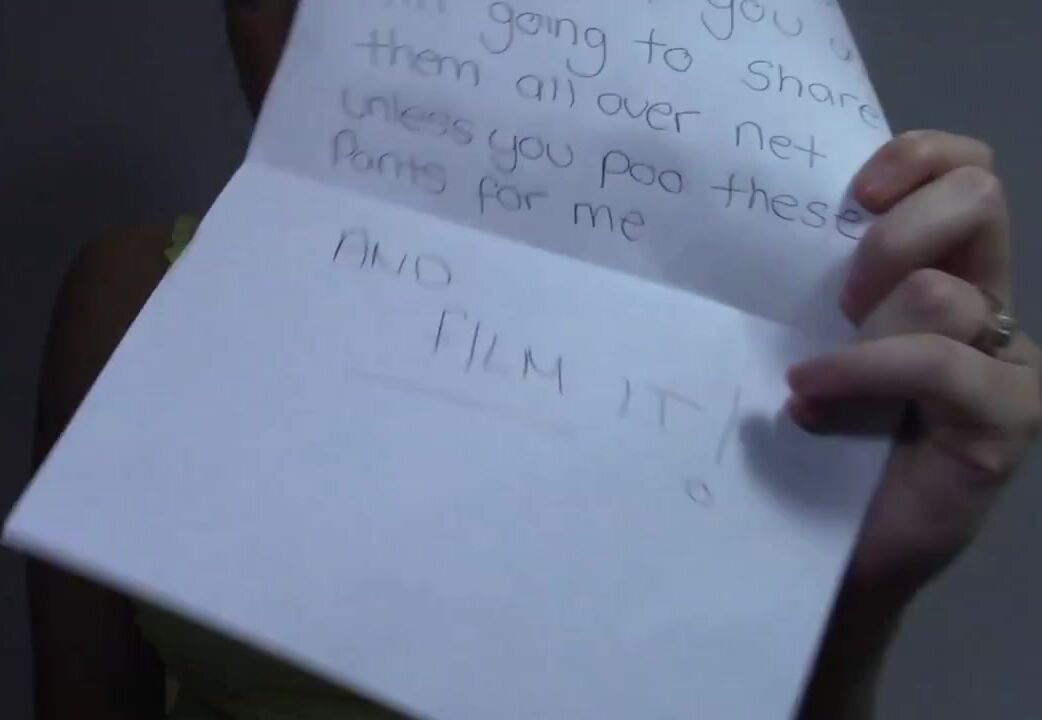 you
going to share
them all over net
unless you poo these
Pants for me
AND
FILM IT!